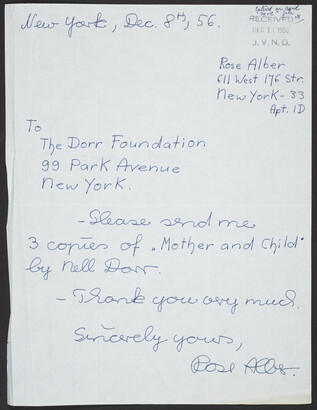 New York, Dec. 8th, 56.
RECEIVED
DEC 1950
J. V. N. D.
Rose Alber
611 West 176 Str.
New York - 33
Apt. 1D
To
The Dorr Foundation
99 Park Avenue
New York.
- Please send me
3 copies of „Mother and Child"
by Nell Dorr.
- Thank you very much.
Sincerely yours,
Rose Alber.